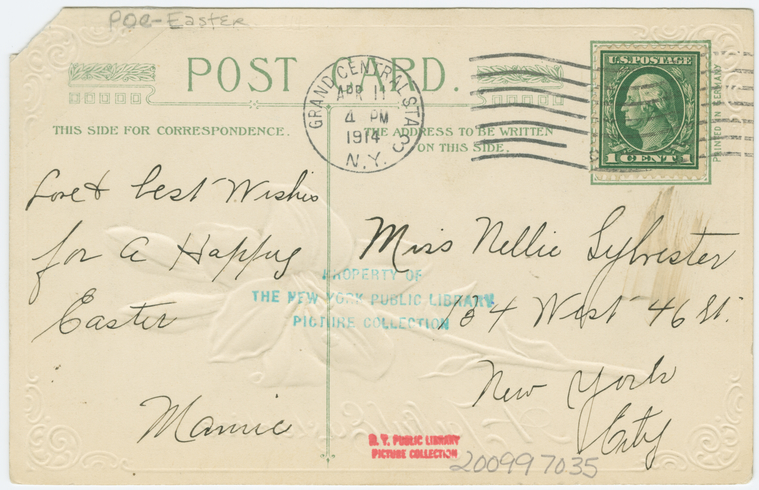 POC-Easter
POST CARD.
GRAND CENTRAL STA. 3
APR 11
4 PM
1914
N.Y.
U.S. POSTAGE
1 CENT 1
PRINTED IN GERMANY
THIS SIDE FOR CORRESPONDENCE.
THE ADDRESS TO BE WRITTEN
ON THIS SIDE.
Love & best Wishes
for a Happy
Easter
Mamie
Miss Nellie Sylvester
134 West 46 St.
New York
City
PROPERTY OF
THE NEW YORK PUBLIC LIBRARY
PICTURE COLLECTION
N. Y. PUBLIC LIBRARY
PICTURE COLLECTION
200997035